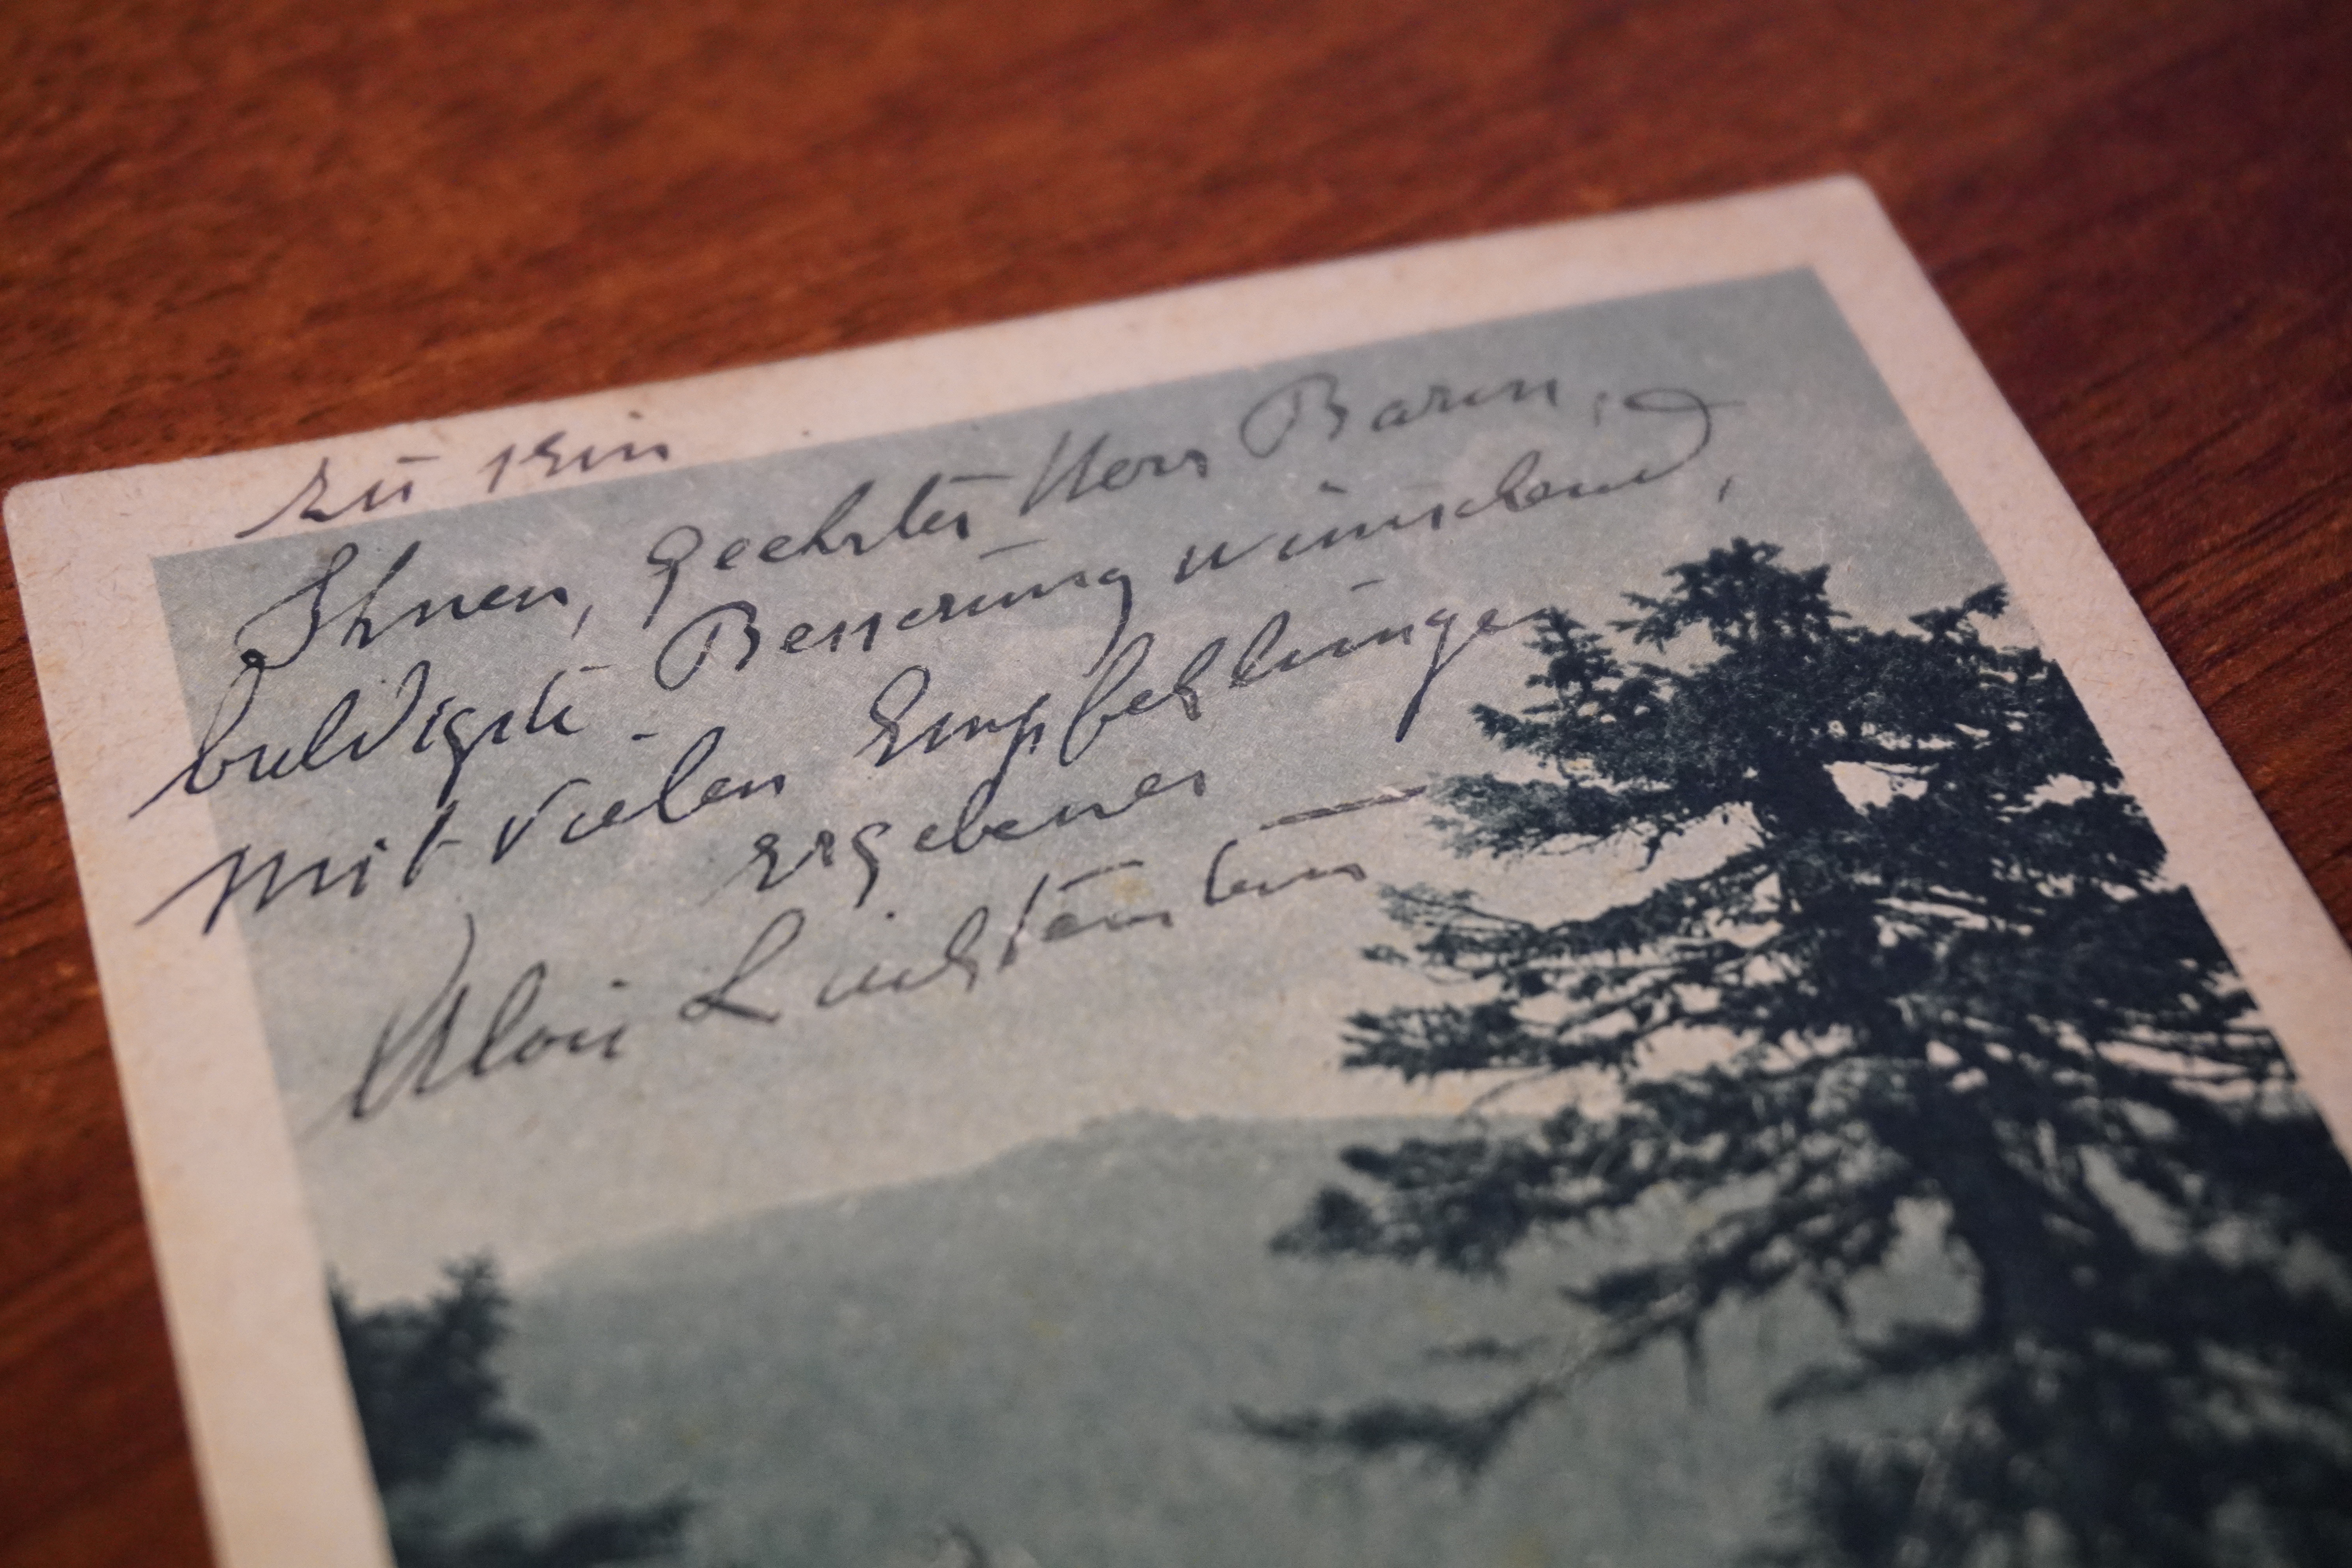 zu sein
Ihnen, geehrter Herr Baron,
baldigste Besserung wünschend,
mit vielen Empfehlungen
ergebener
Alois Liechtenstein